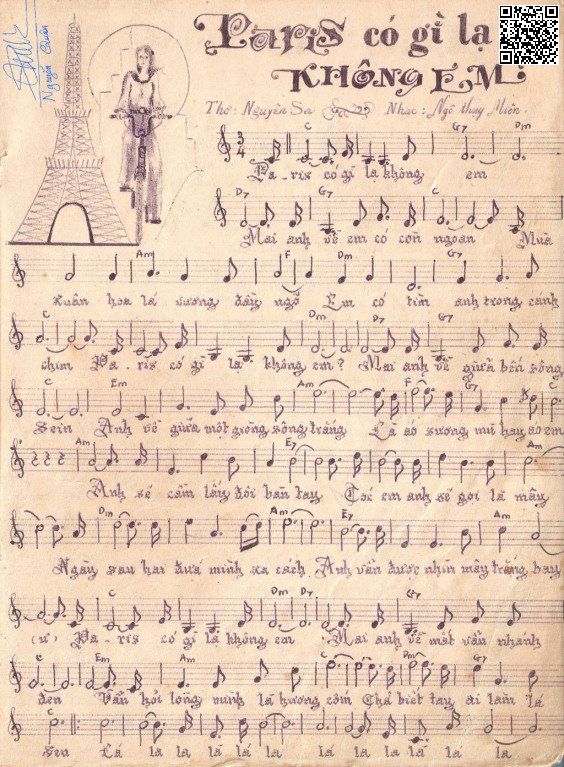 Nguyễn Quân
Paris có gì lạ
KHÔNG EM
Thơ: Nguyên Sa Nhạc: Ngô thụy Miên
C G7 Dm
3 4
Pa-ris có gì lạ không em
D7 G7 C
Mai anh về em có còn ngoan Mùa
Am F Dm G7
Xuân hoa lá vương đầy ngõ Em có tìm anh trong cánh
C Dm D7 G7
chim Pa-ris có gì lạ không em? Mai anh về giữa bến sông
C Em Am F G7
Sein Anh về giữa một giòng sông trắng Là áo sương mù hay áo em
Am E7 Am
Anh sẽ cầm lấy đôi bàn tay Tóc em anh sẽ gọi là mây
Dm Am E7 Am
Ngày sau hai đứa mình xa cách Anh vẫn được nhìn mây trắng bay
C Dm D7 G7
(ư) Pa-ris có gì lạ không em Mai anh về mắt vẫn nhánh
C Em Am F Dm G7
đen Vẫn hỏi lòng mình là hương cốm Chả biết tay ai làm lá
C
sen Lá la la la la la la la la la la la la